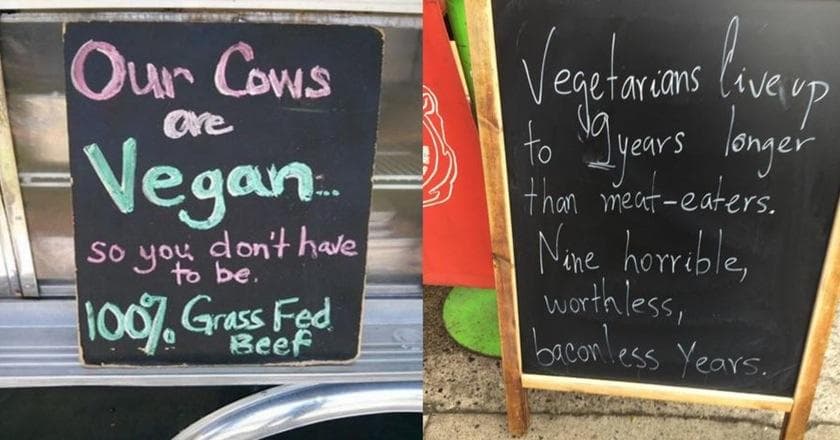 Our Cows
are
Vegan...
so you don't have
to be.
100% Grass Fed
Beef
Vegetarians live up
to 9 years longer
than meat-eaters.
Nine horrible,
worthless,
baconless years.